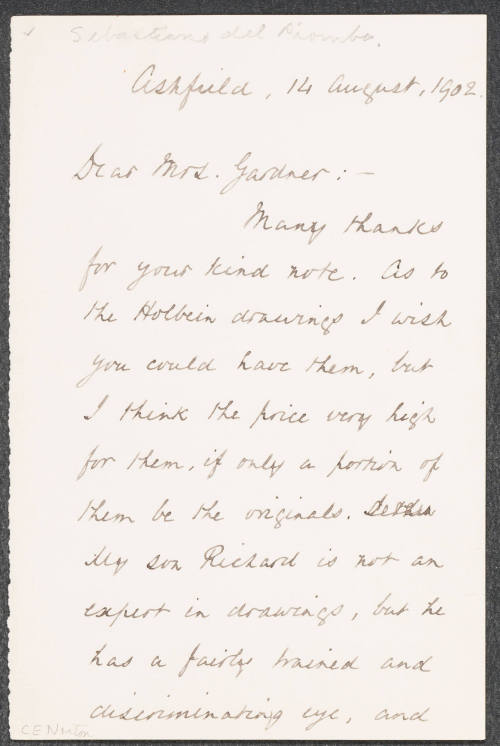 Sebastiano del Piombo.
Ashfield, 14 August, 1902.
Dear Mrs. Gardner: —
Many thanks
for your kind note. As to
the Holbein drawings I wish
you could have them, but
I think the price very high
for them, if only a portion of
them be the originals.
My son Richard is not an
expert in drawings, but he
has a fairly trained and
discriminating eye, and
C E Norton